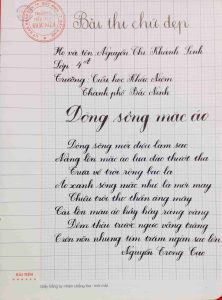 Bài thi chữ đẹp
Họ và tên: Nguyễn Thị Khánh Linh
Lớp 4
Trường Tiểu học Khắc Niệm
Thành phố Bắc Ninh
Dòng sông mặc áo
Dòng sông mới điệu làm sao
Nắng lên mặc áo lụa đào thướt tha
Trưa về trời rộng bao la
Áo xanh sông mặc như là mới may
Chiều trôi thơ thẩn áng mây
Cài lên màu áo hây hây ráng vàng
Đêm thêu trước ngực vầng trăng
Trên nền nhung tím trăm ngàn sao lên
Nguyễn Trọng Tạo